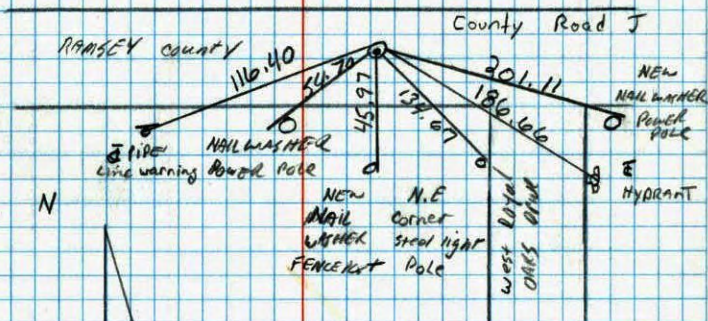 County Road J
RAMSEY County
116.40
54.20
45.97
134.67
186.66
201.11
NEW
NAIL WASHER
POWER
POLE
PIPE
Line warning
NAIL WASHER
POWER POLE
HYDRANT
N
NEW
NAIL
WASHER
N.E
Corner
steel light
Pole
West Royal
OAKS Drive